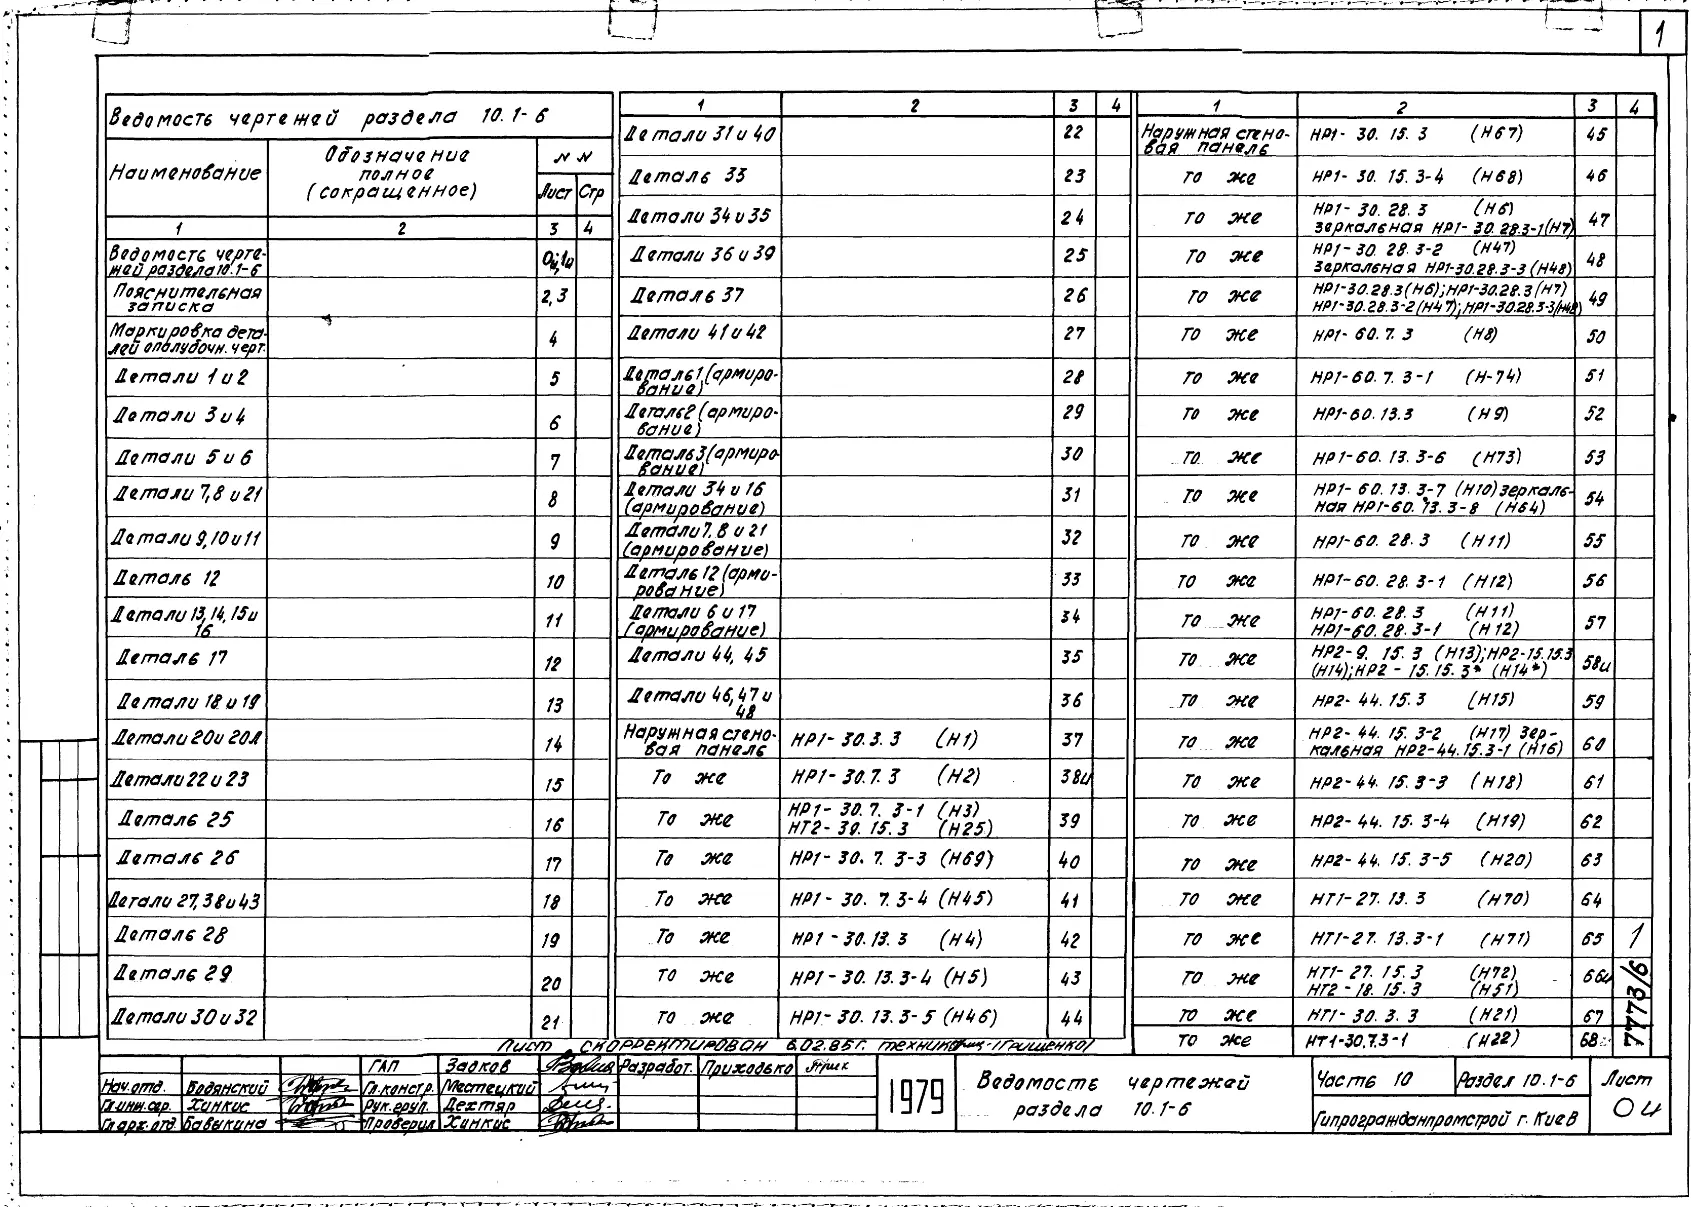 1
Ведомость чертежей раздела 10.1-6
Наименование
Обозначение полное (сокращенное)
№ №
Лист Стр
1 2 3 4
Ведомость чертежей раздела 10.1-6 0и;1и
Пояснительная записка 2,3
Маркировка деталей опалубочн. черт. 4
Детали 1 и 2 5
Детали 3 и 4 6
Детали 5 и 6 7
Детали 7,8 и 21 8
Детали 9,10 и 11 9
Деталь 12 10
Детали 13,14,15 и 16 11
Деталь 17 12
Детали 18 и 19 13
Детали 20 и 20Л 14
Детали 22 и 23 15
Деталь 25 16
Деталь 26 17
Детали 27,38 и 43 18
Деталь 28 19
Деталь 29 20
Детали 30 и 32 21
1 2 3 4
Детали 31 и 40 22
Деталь 33 23
Детали 34 и 35 24
Детали 36 и 39 25
Деталь 37 26
Детали 41 и 42 27
Деталь 1 (армирование) 28
Деталь 2 (армирование) 29
Деталь 3 (армирование) 30
Детали 34 и 16 (армирование) 31
Детали 7,8 и 21 (армирование) 32
Деталь 12 (армирование) 33
Детали 6 и 17 (армирование) 34
Детали 44, 45 35
Детали 46,47 и 48 36
Наружная стеновая панель НР1-30.3.3 (Н1) 37
То же НР1-30.7.3 (Н2) 38и
То же НР1-30.7.3-1 (Н3)
НТ2-39.15.3 (Н25) 39
То же НР1-30.7.3-3 (Н69) 40
То же НР1-30.7.3-4 (Н45) 41
То же НР1-30.13.3 (Н4) 42
То же НР1-30.13.3-4 (Н5) 43
То же НР1-30.13.3-5 (Н46) 44
1 2 3 4
Наружная стеновая панель НР1-30.15.3 (Н67) 45
то же НР1-30.15.3-4 (Н68) 46
то же НР1-30.28.3 (Н6)
Зеркальная НР1-30.28.3-1 (Н7) 47
то же НР1-30.28.3-2 (Н47)
Зеркальная НР1-30.28.3-3 (Н48) 48
то же НР1-30.28.3 (Н6); НР1-30.28.3 (Н7)
НР1-30.28.3-2 (Н47); НР1-30.28.3-3 (Н48) 49
то же НР1-60.7.3 (Н8) 50
то же НР1-60.7.3-1 (Н-74) 51
то же НР1-60.13.3 (Н9) 52
то же НР1-60.13.3-6 (Н73) 53
то же НР1-60.13.3-7 (Н10) зеркальная НР1-60.13.3-8 (Н64) 54
то же НР1-60.28.3 (Н11) 55
то же НР1-60.28.3-1 (Н12) 56
то же НР1-60.28.3 (Н11)
НР1-60.28.3-1 (Н12) 57
то же НР2-9.15.3 (Н13); НР2-15.15.3
(Н14); НР2-15.15.3* (Н14*) 58и
то же НР2-44.15.3 (Н15) 59
то же НР2-44.15.3-2 (Н17) Зеркальная НР2-44.15.3-1 (Н16) 60
то же НР2-44.15.3-3 (Н18) 61
то же НР2-44.15.3-4 (Н19) 62
то же НР2-44.15.3-5 (Н20) 63
то же НТ1-27.13.3 (Н70) 64
то же НТ1-27.13.3-1 (Н71) 65
то же НТ1-27.15.3 (Н72)
НТ2-18.15.3 (Н51) 66и
то же НТ1-30.3.3 (Н21) 67
то же НТ1-30.7.3-1 (Н22) 68
7773/6 1
Лист скорректирован 6.02.85г. техник /Грищенко/
Нач.отд. Бодянский
Гл.инж.отд. Хинкис
Гл.арх.отд. Бабыкина
ГАП Задков
Гл.констр. Местецкий
Рук.груп. Дехтяр
Проверил Хинкис
Разработ. Приходько
1979
Ведомость чертежей раздела 10.1-6
Часть 10 Раздел 10.1-6
Гипрогражданпромстрой г. Киев
Лист 0и